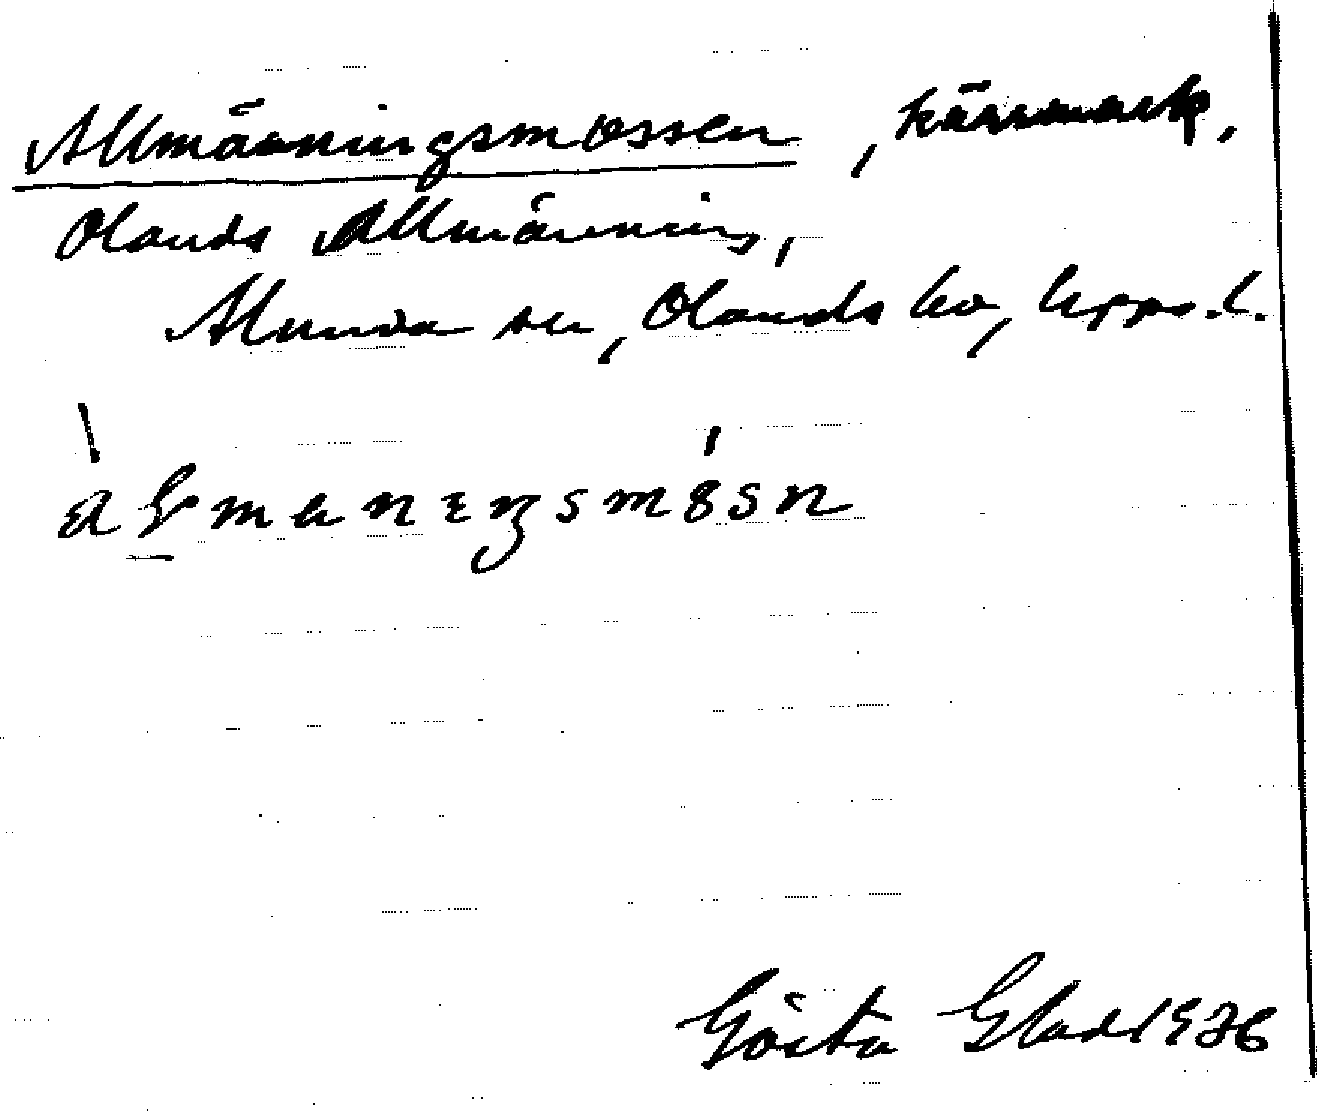 Allmänningsmossen, kärrmark,
Olands Allmänning,
Alunda sn, Olands hd, Upps. l.
Gösta Glad 1936